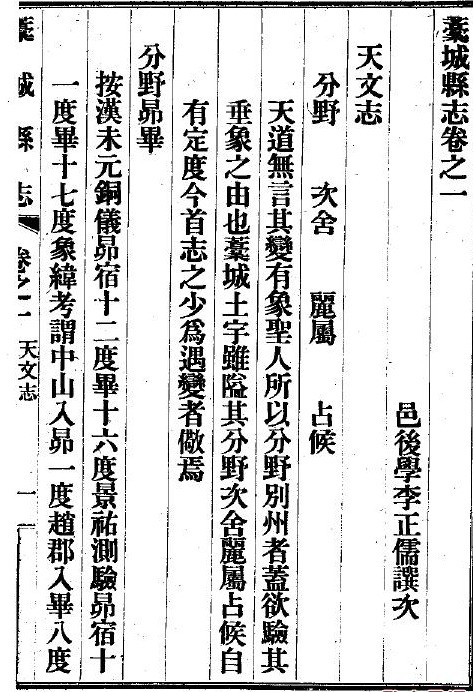 藁城縣志卷之一
邑後學李正儒譔次
天文志
分野 次舍 麗屬 占候
天道無言其變有象聖人所以分野別州者蓋欲驗其
垂象之由也藁城土宇雖隘其分野次舍麗屬占候自
有定度今首志之少爲遇變者儆焉
分野昴畢
按漢未元銅儀昴宿十二度畢十六度景祐測驗昴宿十
一度畢十七度象緯考謂中山入昴一度趙郡入畢八度
藁城縣志 卷之一 天文志 一